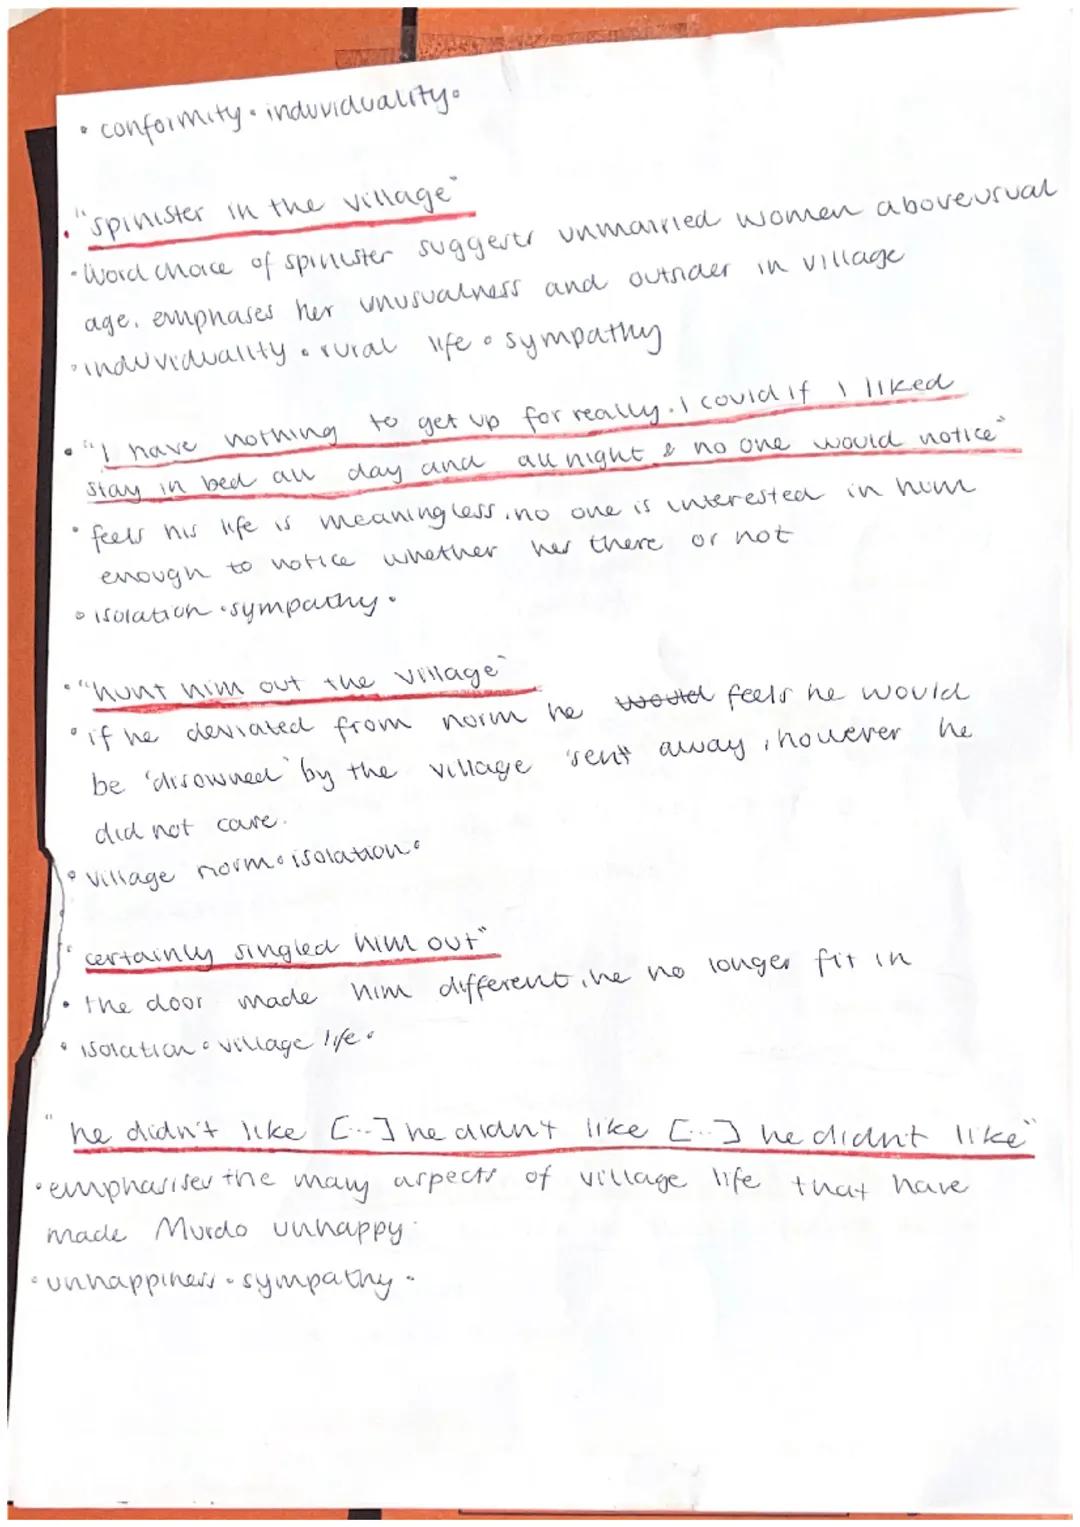 • conformity • induviduality •
• "spinister in the village"
• Word choice of spinister suggests unmarried women above usual
age. emphases her unusualness and outsider in village
• induviduality • rural life • sympathy
• "I have nothing to get up for really. I could if I liked
stay in bed all day and all night & no one would notice"
• feels his life is meaningless, no one is interested in him
enough to notice whether hes there or not
• isolation • sympathy •
• "hunt him out the village"
• if he deviated from norm he would feels he would
be 'disowned' by the village 'sent' away, however he
did not care.
• village norm • isolation •
" certainly singled him out"
• the door made him different, he no longer fit in
• isolation • village life •
" he didn't like [...] he didn't like [...] he didnt like"
• emphasises the many aspects of village life that have
made Murdo unhappy.
• unhappiness • sympathy •